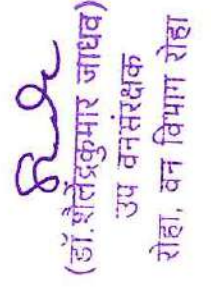 (डॉ. शैलेंद्रकुमार जाधव)
उप वनसंरक्षक
रोहा, वन विभाग रोहा